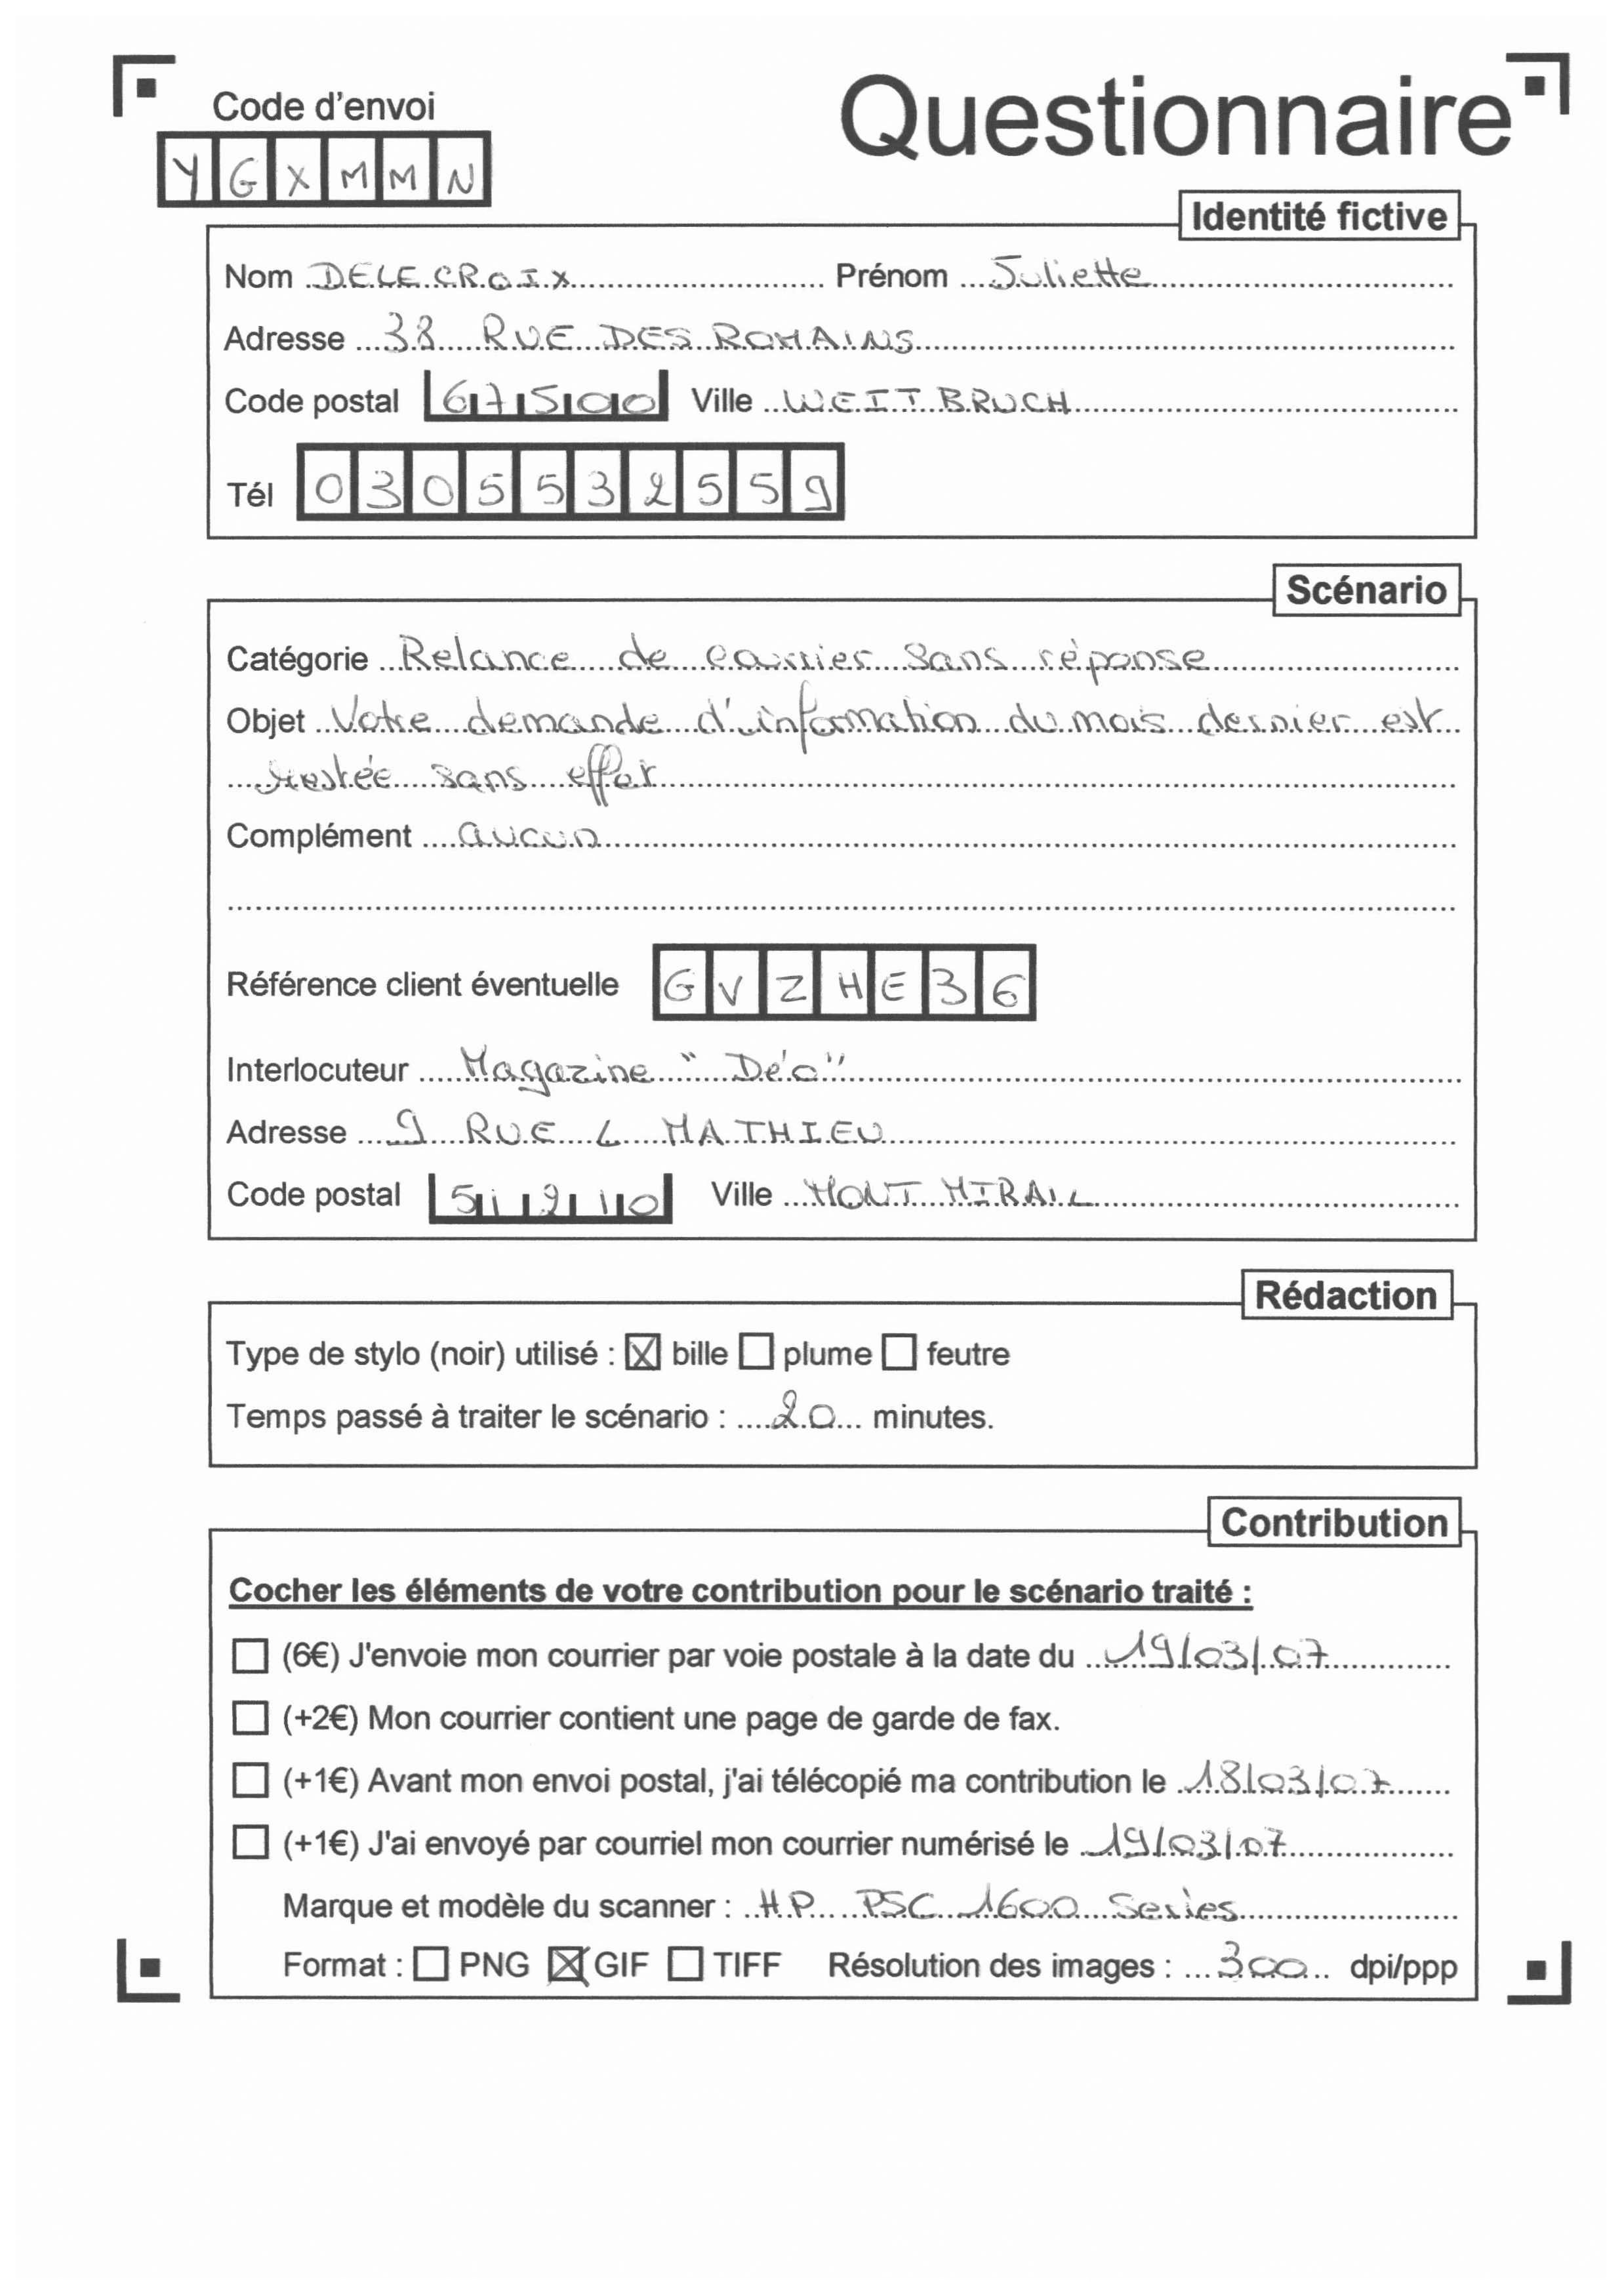 Code d'envoi
Questionnaire
YGXMMN
Identité fictive
Nom DELECROIX Prénom Juliette
Adresse 38 RUE DES ROMAINS
Code postal 67500 Ville WEITBRUCH
Tél 0305532559
Scénario
Catégorie Relance de courrier sans réponse
Objet Votre demande d'information du mois dernier est
restée sans effet
Complément aucun
Référence client éventuelle GVZHE36
Interlocuteur Magazine "Déo"
Adresse 9 RUE L MATHIEU
Code postal 51210 Ville MONT MIRAIL
Rédaction
Type de stylo (noir) utilisé : ☒ bille ☐ plume ☐ feutre
Temps passé à traiter le scénario : 20 minutes.
Contribution
Cocher les éléments de votre contribution pour le scénario traité :
☐ (6€) J'envoie mon courrier par voie postale à la date du 19/03/07
☐ (+2€) Mon courrier contient une page de garde de fax.
☐ (+1€) Avant mon envoi postal, j'ai télécopié ma contribution le 18/03/07
☐ (+1€) J'ai envoyé par courriel mon courrier numérisé le 19/03/07
Marque et modèle du scanner : HP PSC 1600 Series
Format : ☐ PNG ☒ GIF ☐ TIFF Résolution des images : 300 dpi/ppp